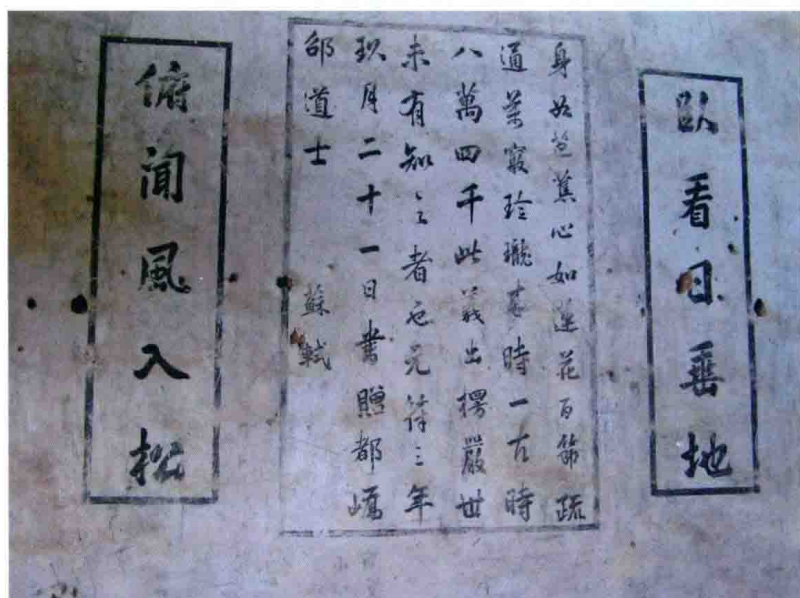 臥看日垂地
身如芭蕉心如蓮花百節疏
通萬竅玲瓏来時一去時
八萬四千此義出楞嚴世
未有知之者也元符三年
玖月二十一日書贈都嶠
邵道士 蘇軾
俯聞風入松